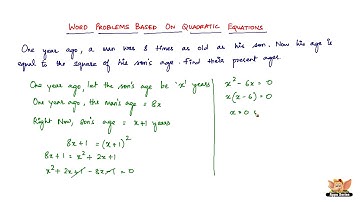 WORD PROBLEMS BASED ON QUADRATIC EQUATIONS
One year ago, a man was 8 times as old as his son. Now his age is
equal to the square of his son's age. Find their present ages.
One year ago, let the son's age be 'x' years
One year ago, the man's age = 8x
Right Now, Son's age = x+1 years
8x+1 = (x+1)²
8x+1 = x²+2x+1
x²+2x+1-8x-1 = 0
x²-6x = 0
x(x-6) = 0
x = 0